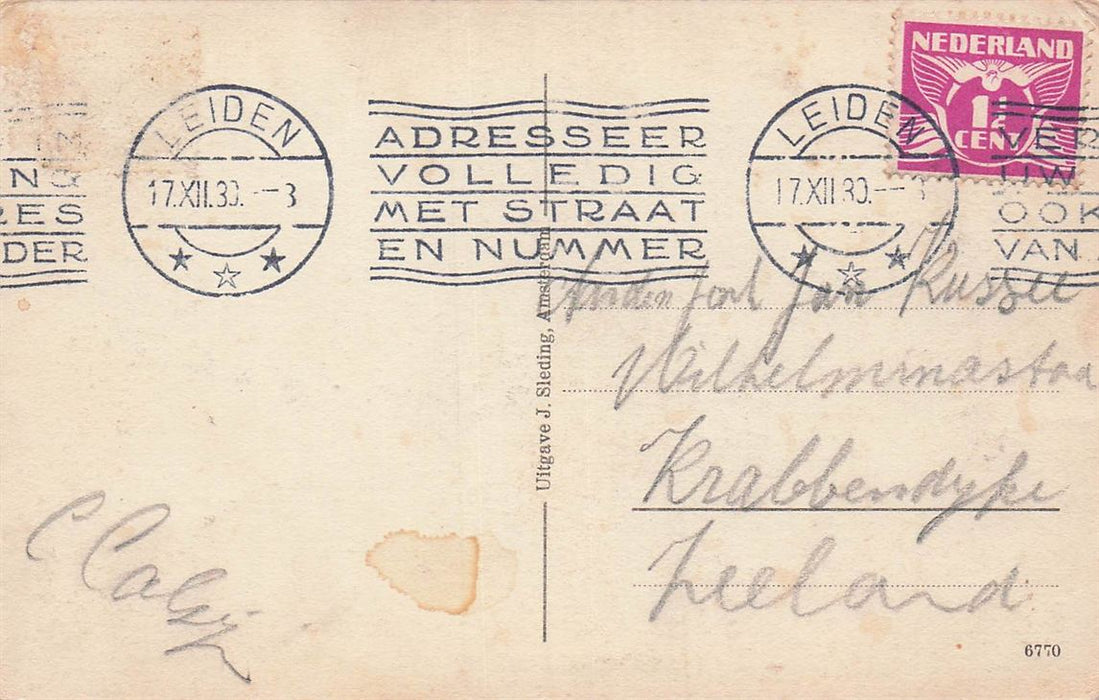 NEDERLAND
1½
CENT
LEIDEN
17.XII.30.-3
ADRESSEER
VOLLEDIG
MET STRAAT
EN NUMMER
LEIDEN
17.XII.30.-3
VER
UW
OOK
VAN
N
RES
DER
Uitgave J. Sleding, Amsterdam
Jan Russee
Wilhelminastraa
Krabbendyke
Zeeland
C
6770